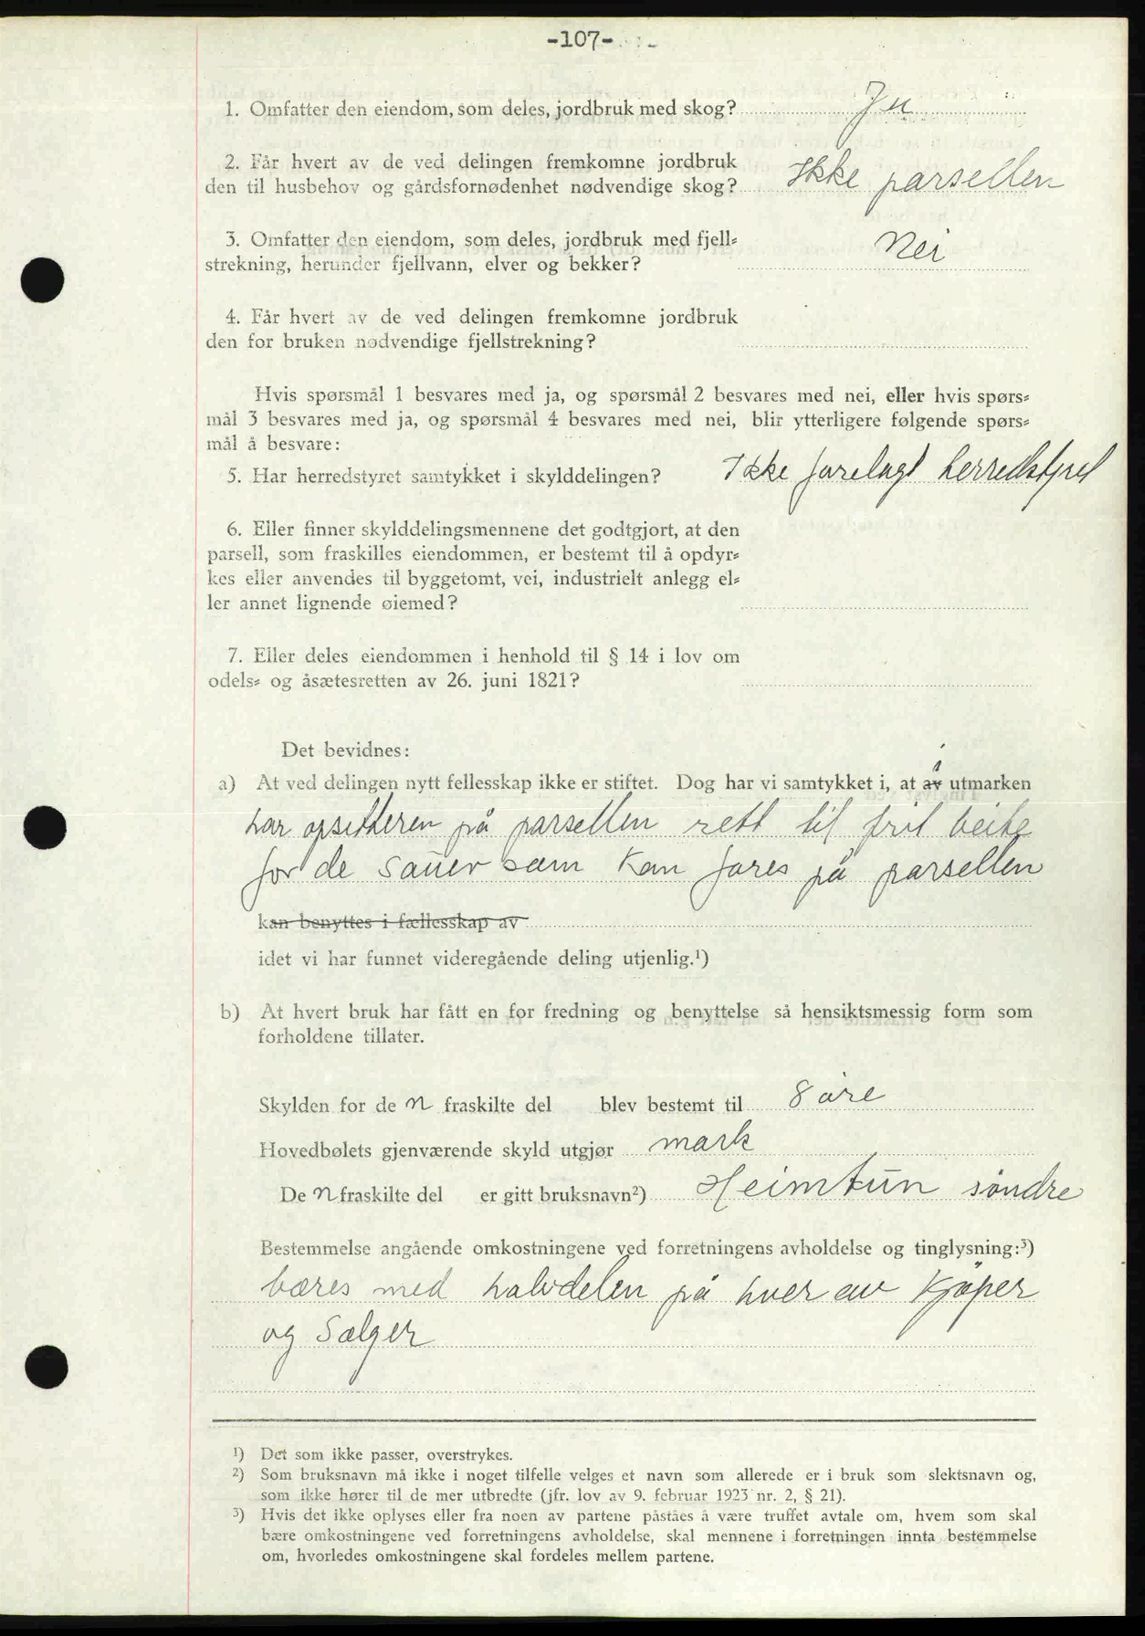 -107-
1. Omfatter den eiendom, som deles, jordbruk med skog? Ja
2. Får hvert av de ved delingen fremkomne jordbruk
den til husbehov og gårdsfornødenhet nødvendige skog? Ikke parsellen
3. Omfatter den eiendom, som deles, jordbruk med fjell-
strekning, herunder fjellvann, elver og bekker? Nei
4. Får hvert av de ved delingen fremkomne jordbruk
den for bruken nødvendige fjellstrekning?
Hvis spørsmål 1 besvares med ja, og spørsmål 2 besvares med nei, eller hvis spørs-
mål 3 besvares med ja, og spørsmål 4 besvares med nei, blir ytterligere følgende spørs-
mål å besvare:
5. Har herredstyret samtykket i skylddelingen? Ikke forelagt herredstyret
6. Eller finner skylddelingsmennene det godtgjort, at den
parsell, som fraskilles eiendommen, er bestemt til å opdyr-
kes eller anvendes til byggetomt, vei, industrielt anlegg el-
ler annet lignende øiemed?
7. Eller deles eiendommen i henhold til § 14 i lov om
odels- og åsætesretten av 26. juni 1821?
Det bevidnes:
a) At ved delingen nytt fellesskap ikke er stiftet. Dog har vi samtykket i, at av i utmarken
har opsitteren på parsellen rett til frit beite
for de sauer som kan fores på parsellen
kan benyttes i fællesskap av
idet vi har funnet videregående deling utjenlig.¹)
b) At hvert bruk har fått en for fredning og benyttelse så hensiktsmessig form som
forholdene tillater.
Skylden for de n fraskilte del blev bestemt til 8 øre
Hovedbølets gjenværende skyld utgjør mark
De n fraskilte del er gitt bruksnavn²) Heimtun søndre
Bestemmelse angående omkostningene ved forretningens avholdelse og tinglysning:³)
bæres med halvdelen på hver av Kjøper
og Sælger
¹) Det som ikke passer, overstrykes.
²) Som bruksnavn må ikke i noget tilfelle velges et navn som allerede er i bruk som slektsnavn og,
som ikke hører til de mer utbredte (jfr. lov av 9. februar 1923 nr. 2, § 21).
³) Hvis det ikke oplyses eller fra noen av partene påståes å være truffet avtale om, hvem som skal
bære omkostningene ved forretningens avholdelse, skal mennene i forretningen innta bestemmelse
om, hvorledes omkostningene skal fordeles mellem partene.